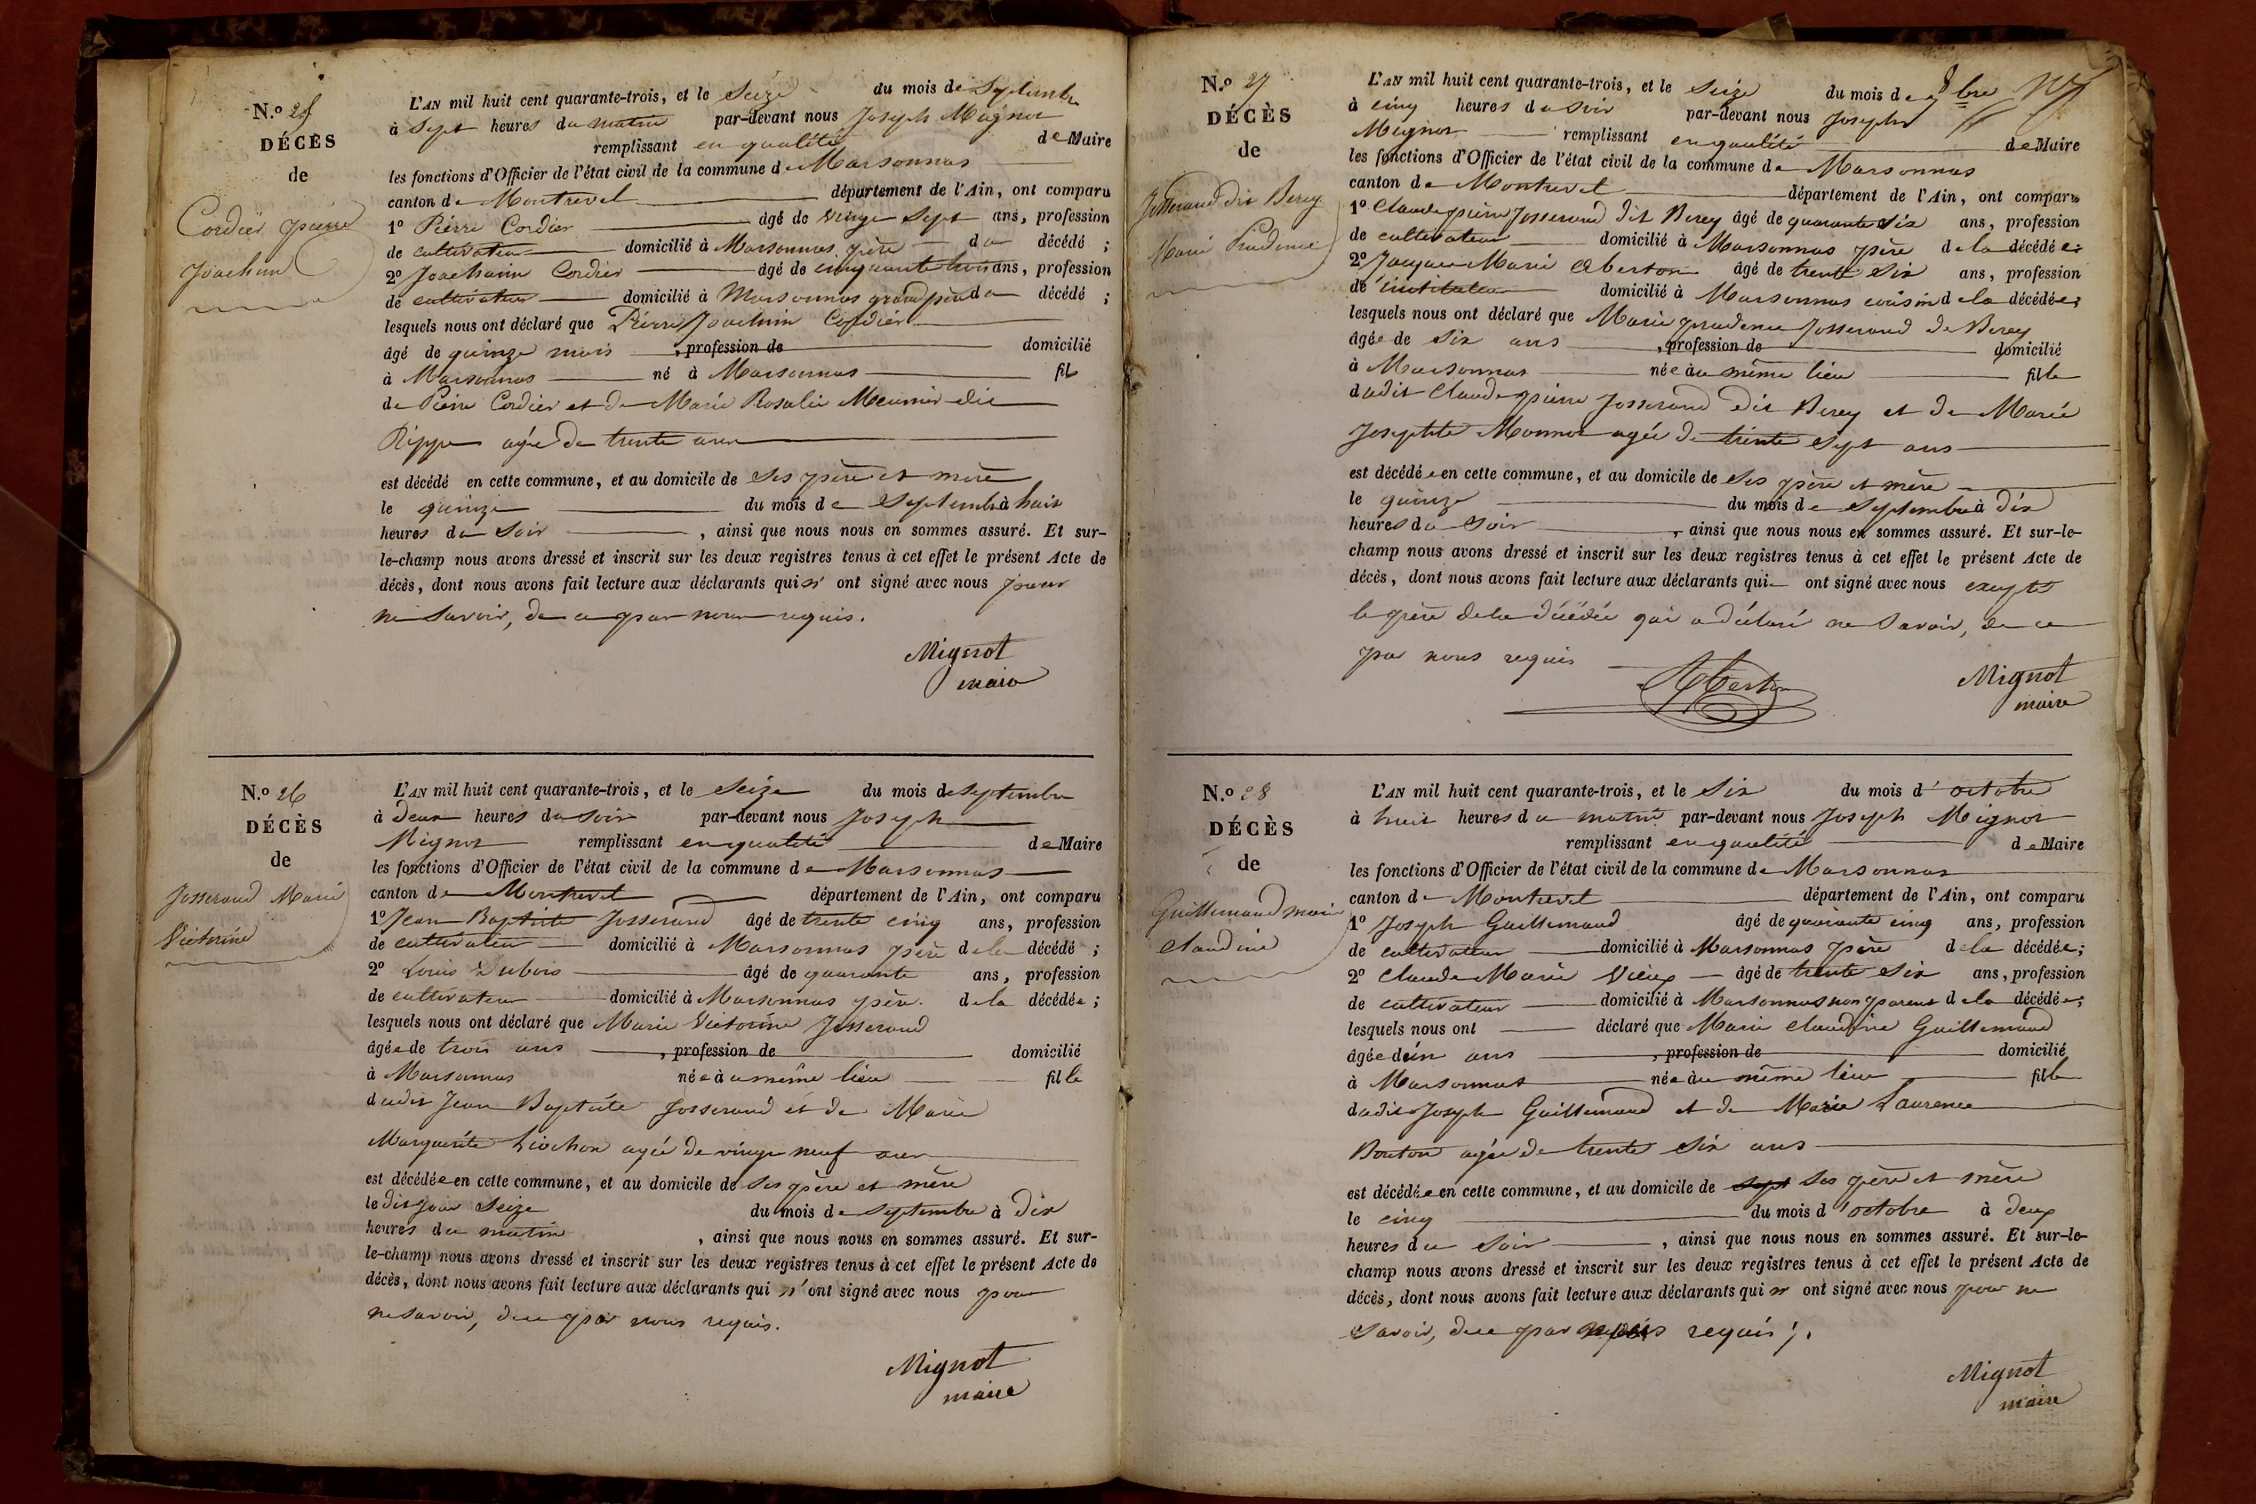 N.º 25
DÉCÈS
de
Cordier pierre
Joachim
L'AN mil huit cent quarante-trois, et le Seize du mois de Septembre
à Sept heures du matin par-devant nous Joseph Mignot
remplissant en qualité de Maire
les fonctions d'Officier de l'état civil de la commune de Marsonnas
canton de Montrevel département de l'Ain, ont comparu
1º Pierre Cordier âgé de vingt Sept ans, profession
de cultivateur domicilié à Marsonnas père du décédé ;
2º Joachim Cordier âgé de cinquante trois ans, profession
de cultivateur domicilié à Marsonnas grand père du décédé ;
lesquels nous ont déclaré que Pierre Joachim Cordier
âgé de quinze mois , profession de domicilié
à Marsonnas né à Marsonnas fils
de Pierre Cordier et de Marie Rosalie Meunier dit
Rippe agée de trente ans
est décédé en cette commune, et au domicile de Ses père et mère
le quinze du mois de Septembre à huit
heures du Soir , ainsi que nous nous en sommes assuré. Et sur-
le-champ nous avons dressé et inscrit sur les deux registres tenus à cet effet le présent Acte de
décès, dont nous avons fait lecture aux déclarants qui n' ont signé avec nous pour
ne Savoir, de ce par nous requis.
Mignot
maire
N.º 26
DÉCÈS
de
Josserand Marie
Victorine
L'AN mil huit cent quarante-trois, et le Seize du mois de Septembre
à deux heures du soir par-devant nous Joseph
Mignot remplissant en qualité de Maire
les fonctions d'Officier de l'état civil de la commune de Marsonnas
canton de Montrevel département de l'Ain, ont comparu
1º Jean Baptiste Josserand âgé de trente cinq ans, profession
de cultivateur domicilié à Marsonnas père de la décédé ;
2º Louis Dubois âgé de quarante ans, profession
de cultivateur domicilié à Marsonnas père de la décédée ;
lesquels nous ont déclaré que Marie Victorine Josserand
âgée de trois ans , profession de domicilié
à Marsonnas née au même lieu fille
dudit Jean Baptiste Josserand et de Marie
Marguerite Liochon agée de vingt neuf ans
est décédée en cette commune, et au domicile de Ses père et mère
le dit jour Seize du mois de Septembre à Dix
heures du matin , ainsi que nous nous en sommes assuré. Et sur-
le-champ nous avons dressé et inscrit sur les deux registres tenus à cet effet le présent Acte de
décès, dont nous avons fait lecture aux déclarants qui n' ont signé avec nous pour
ne savoir, de ce par nous requis.
Mignot
maire
N.º 27
DÉCÈS
de
Josserand dit Berey
Marie Prudence
L'AN mil huit cent quarante-trois, et le Seize du mois de 7bre
à cinq heures du soir par-devant nous Joseph
Mignot remplissant en qualité de Maire
les fonctions d'Officier de l'état civil de la commune de Marsonnas
canton de Montrevel département de l'Ain, ont comparu
1º Claude pierre Josserand dit Berey âgé de quarante Six ans, profession
de cultivateur domicilié à Marsonnas père de la décédée ;
2º Jacques Marie Alberton âgé de trente Six ans, profession
de instituteur domicilié à Marsonnas cousin de la décédée ;
lesquels nous ont déclaré que Marie prudence Josserand de Berey
âgée de Six ans , profession de domicilié
à Marsonnas née au même lieu fille
dudit Claude pierre Josserand dit Berey et de Marie
Josephte Monnet agée de trente Sept ans
est décédée en cette commune, et au domicile de Ses père et mère
le quinze du mois de Septembre à dix
heures du Soir , ainsi que nous nous en sommes assuré. Et sur-le-
champ nous avons dressé et inscrit sur les deux registres tenus à cet effet le présent Acte de
décès, dont nous avons fait lecture aux déclarants qui ont signé avec nous excepté
le père de la décédée qui a déclaré ne Savoir, de ce
par nous requis
Mignot
maire
N.º 28
DÉCÈS
de
Guillemaud marie
claudine
L'AN mil huit cent quarante-trois, et le Six du mois d' octobre
à huit heures du matin par-devant nous Joseph Mignot
remplissant en qualité de Maire
les fonctions d'Officier de l'état civil de la commune de Marsonnas
canton de Montrevel département de l'Ain, ont comparu
1º Joseph Guillemaud âgé de quarante cinq ans, profession
de cultivateur domicilié à Marsonnas père de la décédée ;
2º Claude Marie Vieux âgé de trente Six ans, profession
de cultivateur domicilié à Marsonnas non parent de la décédée ;
lesquels nous ont déclaré que Marie Claudine Guillemaud
âgée d'un ans , profession de domicilié
à Marsonnas née au même lieu fille
dudit Joseph Guillemaud et de Marie Laurence
Bouton agée de trente Six ans
est décédée en cette commune, et au domicile de Ses père et mère
le cinq du mois d'octobre à deux
heures du Soir , ainsi que nous nous en sommes assuré. Et sur-le-
champ nous avons dressé et inscrit sur les deux registres tenus à cet effet le présent Acte de
décès, dont nous avons fait lecture aux déclarants qui n' ont signé avec nous pour ne
Savoir, de ce par nous requis ;.
Mignot
maire